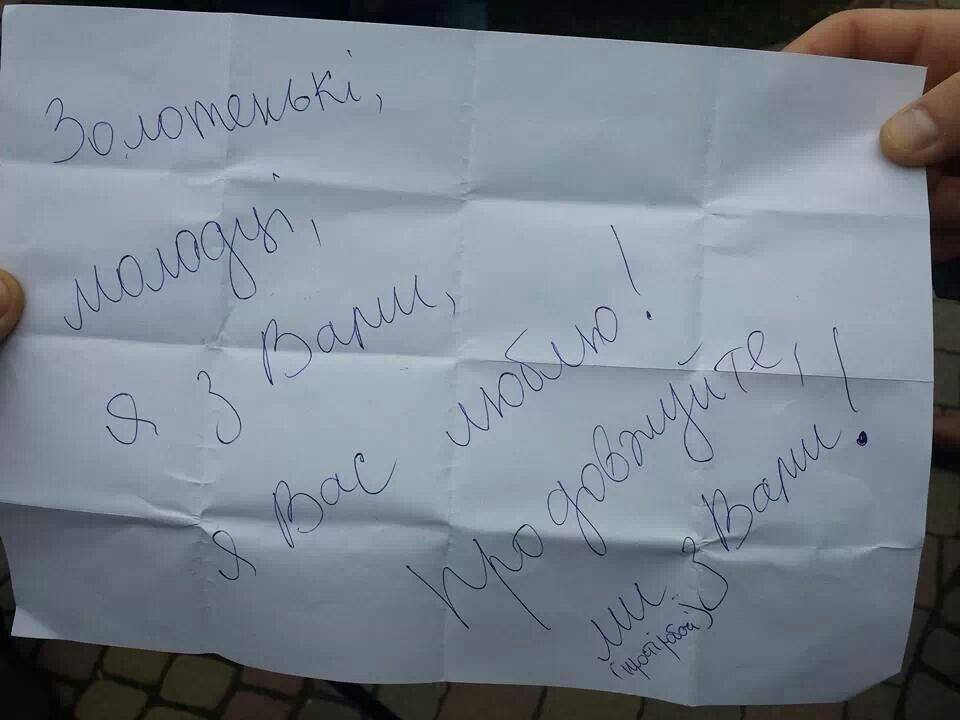 Золотенькі,
молодці,
я з Вами,
я Вас люблю!
Продовжуйте,
ми з Вами!